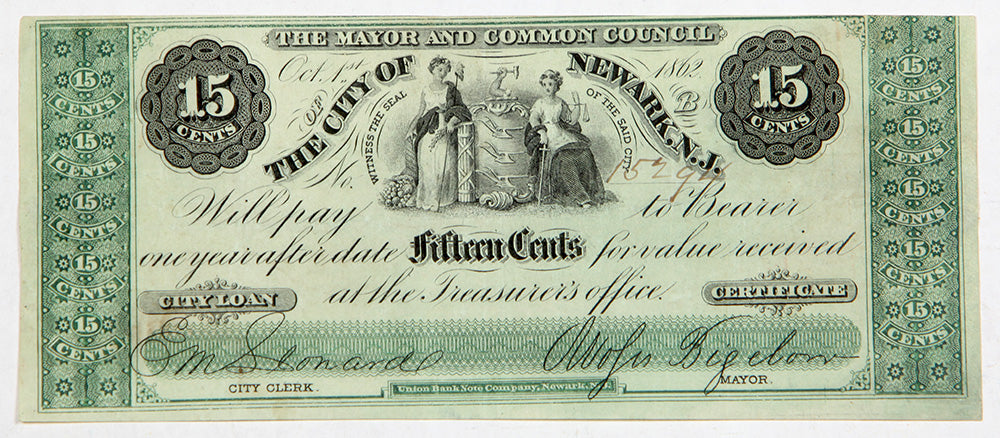 THE MAYOR AND COMMON COUNCIL
Oct. 1st 1862.
OF THE CITY OF NEWARK, N.J.
B
WITNESS THE SEAL OF THE SAID CITY
15 CENTS
15 CENTS
No.
Will pay to Bearer
one year after date Fifteen Cents for value received
at the Treasurer's office.
CITY LOAN CERTIFICATE
Moses Bigelow
CITY CLERK.
MAYOR.
Union Bank Note Company, Newark, N.J.
15 CENTS
15 CENTS
15 CENTS
15 CENTS
15 CENTS
15 CENTS
15 CENTS
15 CENTS
15 CENTS
15 CENTS